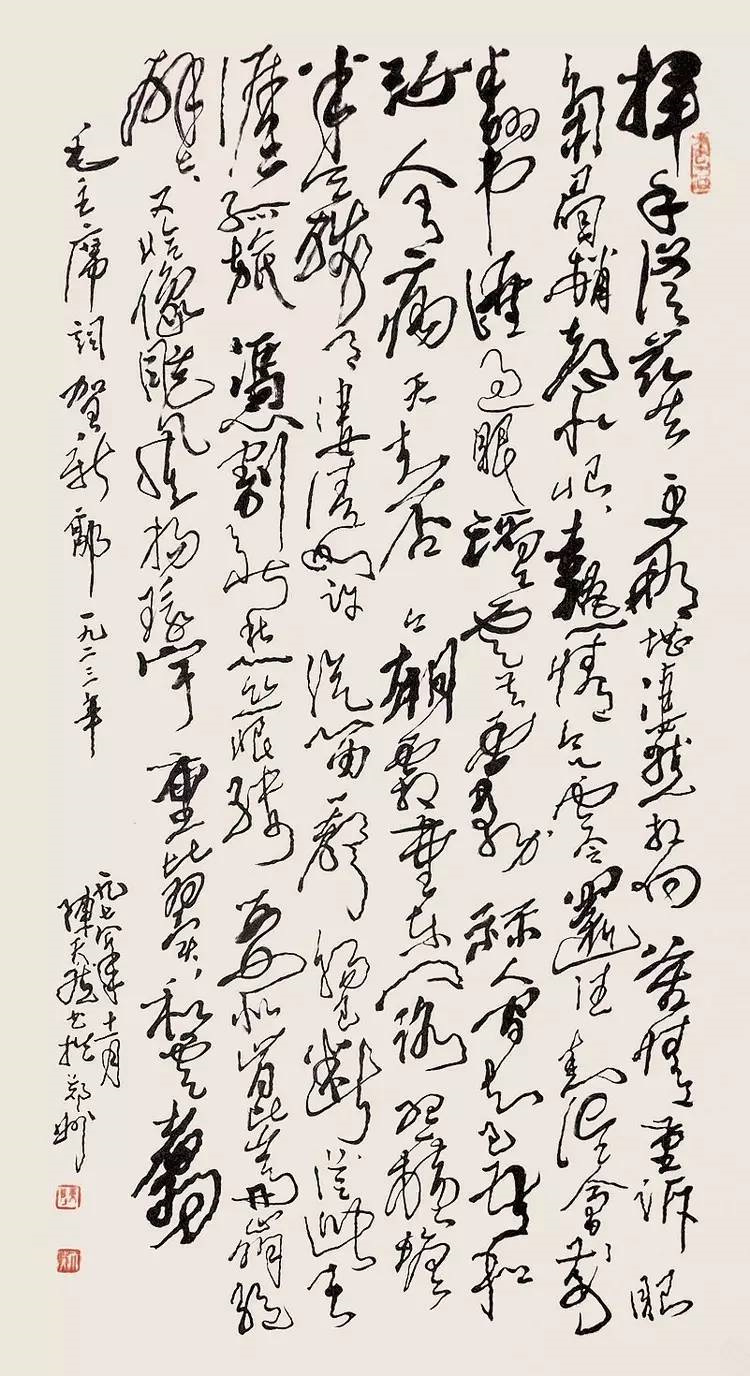 揮手從兹去 更那堪凄然相向 苦情重诉 眼
角眉梢都似恨、熱淚欲零還住 知误會前
番书語 过眼滔滔雲共雾 算人间知己吾和
汝 人有病 天知否 今朝霜重東門路 照横塘
半天殘月 凄清如许 汽笛一聲 腸已断 從此天
涯孤旅 憑割断愁丝恨縷 要似崑崙崩绝
壁、又恰像颱风掃環宇 重比翼、和雲翥
毛主席词贺新郎 一九二三年
一九七年十一月
陳天然书於郑州